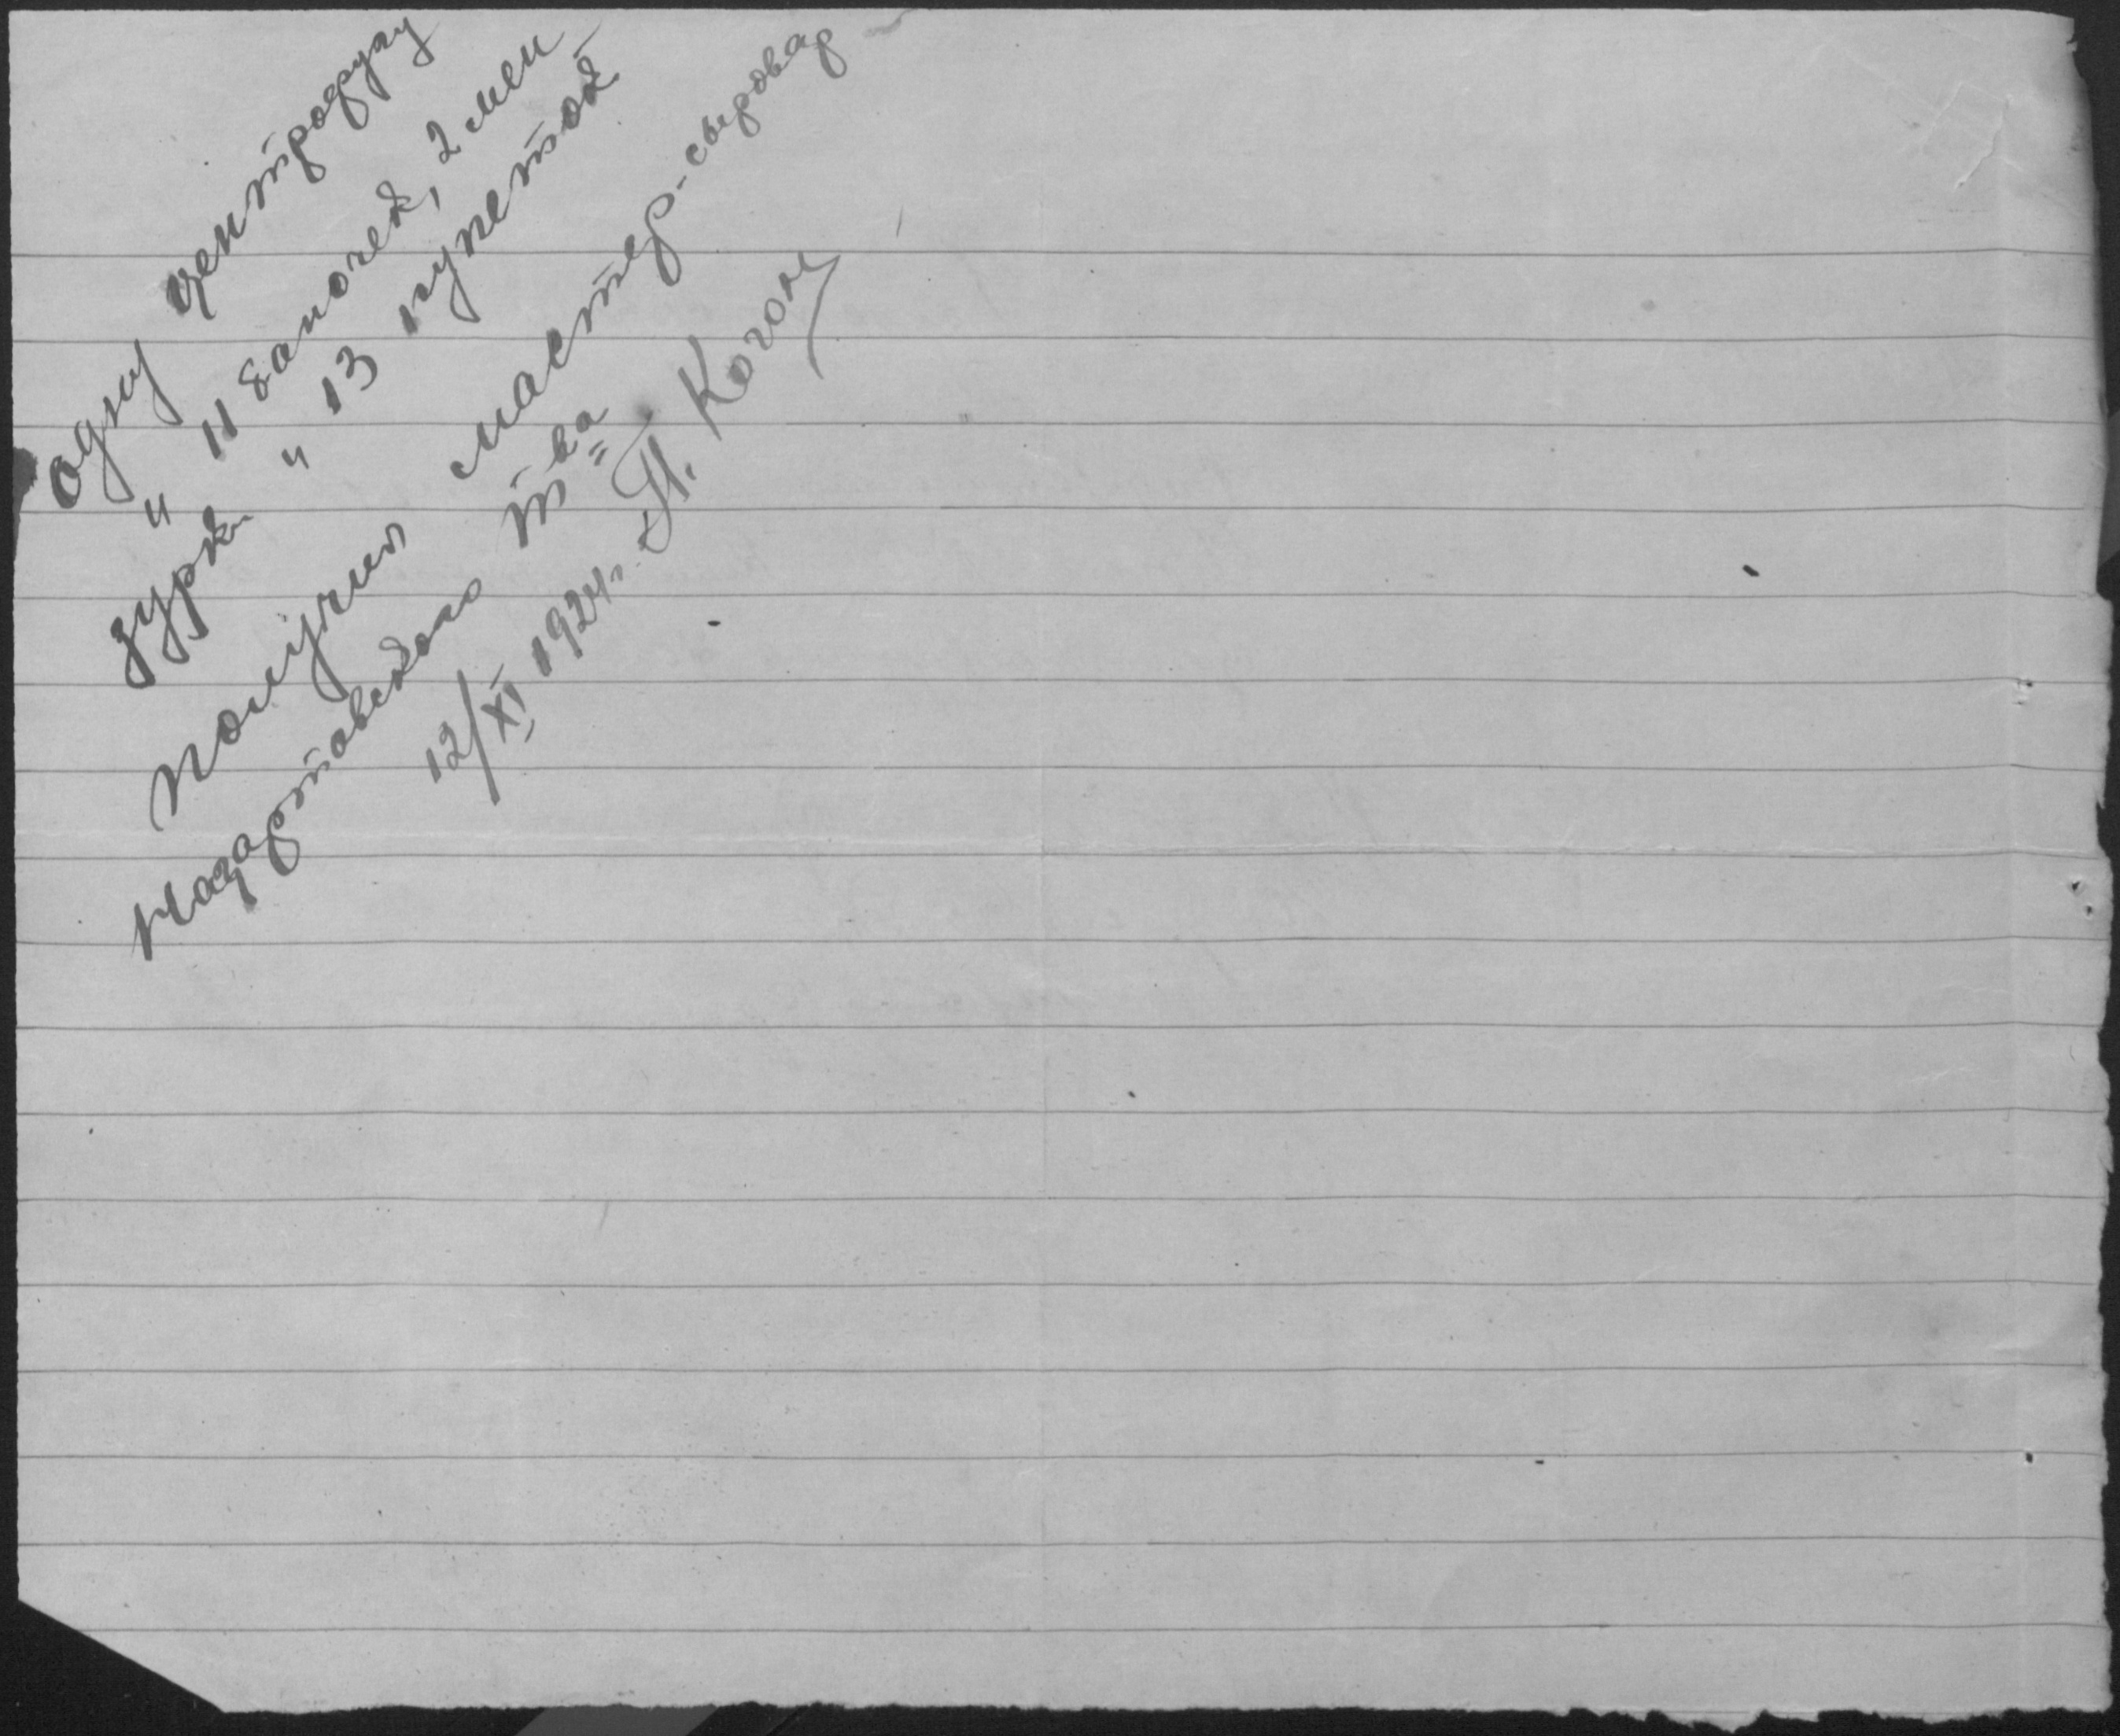 одну центрофугу
и 11 баночек, 2 мен
зурк. и 13 кулеток
получил мастер-сыровар
Нацаротовского т-ва
12/XI 1924 г. П. Когон